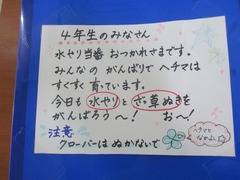 4年生のみなさん
水やり当番 おつかれさまです。
みんなの がんばりで ヘチマは
すくすく 育っています。
今日も 水やりと ざっ草ぬきを
がんばろう〜! お〜!
注意
クローバーは ぬかないで
ヘチマと
なかよし